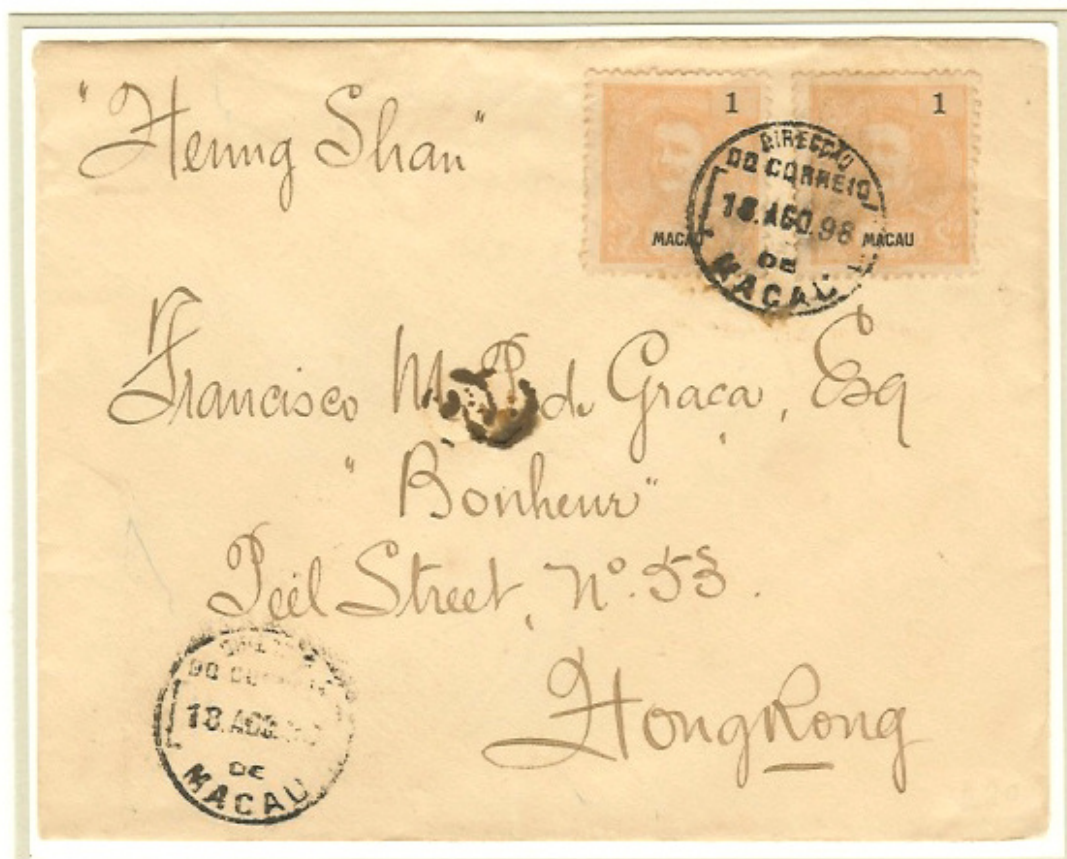 "Heung Shan"
1
1
MACAU
MACAU
DIRECÇÃO
DO CORREIO
18.AGO.98
DE
MACAU
Francisco M. P. de Graça, Esq
"Bonheur"
Peel Street, Nº. 53.
HongKong
DO
18.AGO.
DE
MACAU